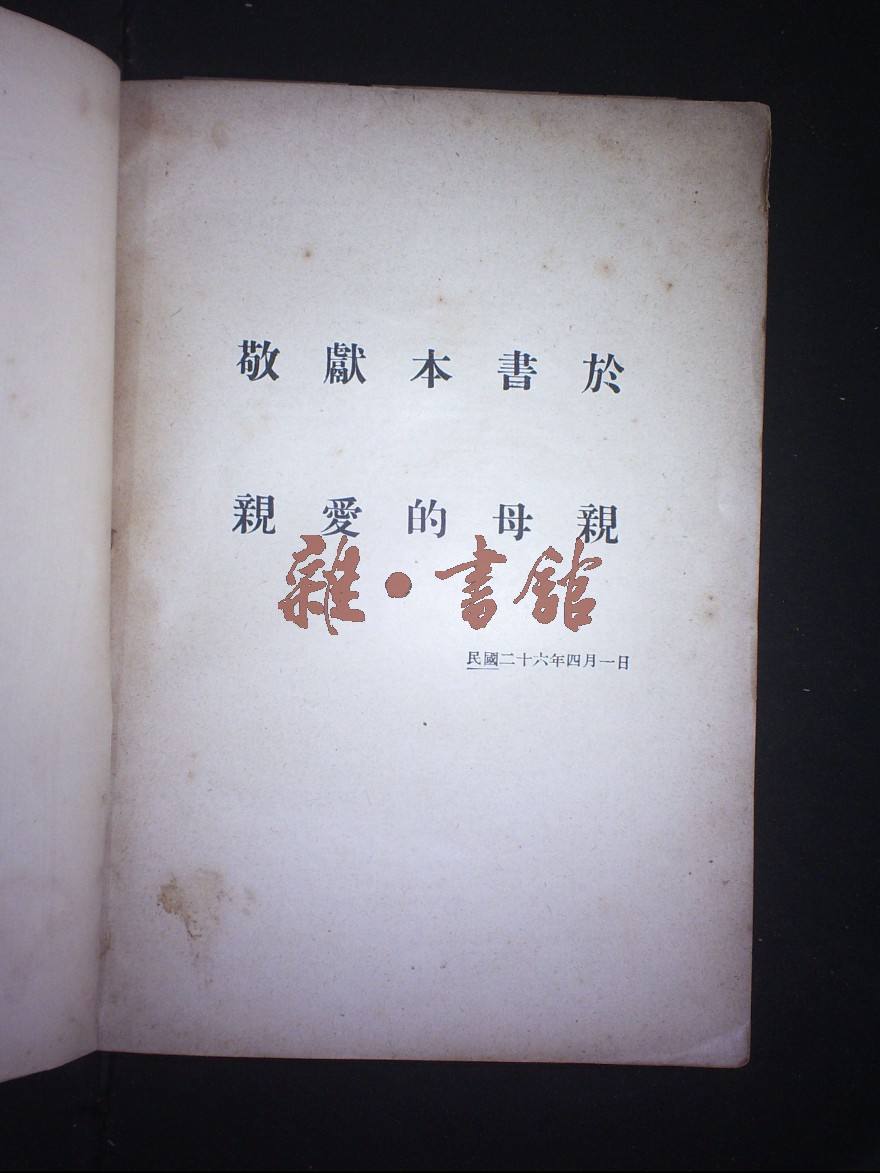 敬獻本書於
親愛的母親
雜·書館
民國二十六年四月一日